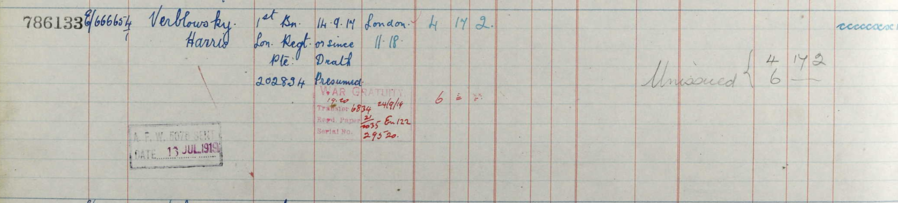 786133 E/666654/1 Verblowsky. 1st Bn. 14.9.17 London. 4 17 2.
Harris Lon. Regt. or since 11.18.
Pte. Death
202834 Presumed
WAR GRATUITY 6 6 -
Transfer 6834 24/9/19
Regd. Paper En 122
Serial No. 29520.
Unissued { 4 17 2
6 —
DATE 13 JUL. 1919